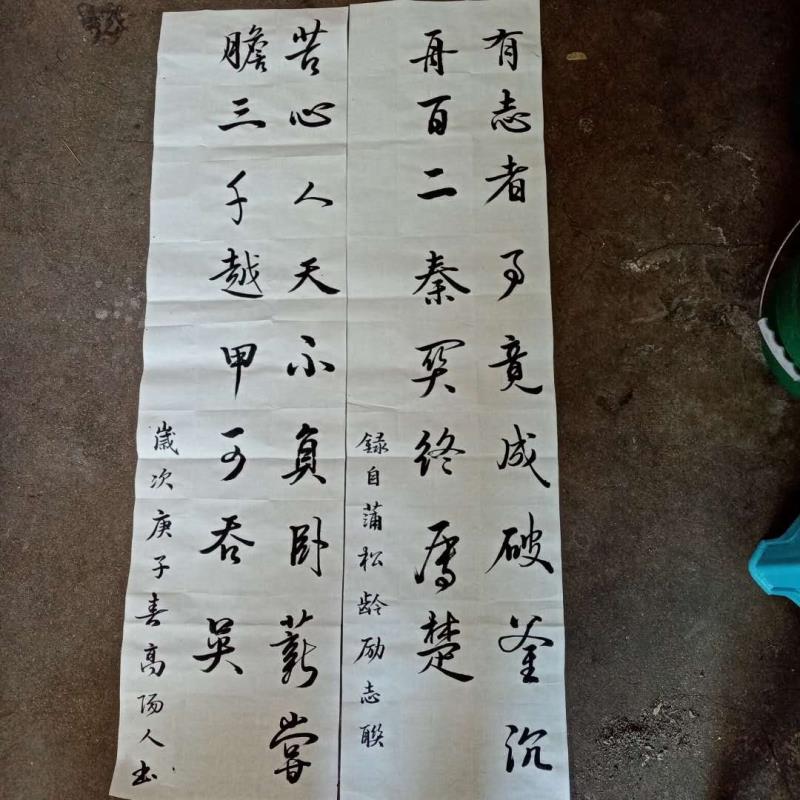 有志者事竟成破釜沉
舟百二秦关终属楚
録自蒲松龄励志联
苦心人天不負卧薪嘗
膽三千越甲可吞吴
歲次庚子春高陽人书